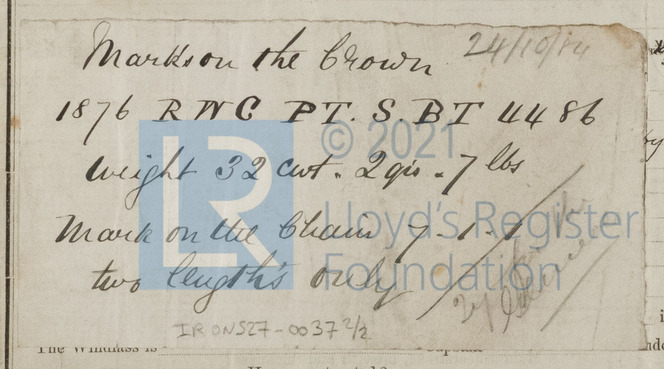 24/10/84
Marks on the Crown
1876 RWC PT. S. BT 4486
Weight 32 cwt. 2 qrs. 7 lbs
Mark on the Chain 7-1-1
two length's only
© 2021
LR
Lloyd's Register
Foundation
IRONS27-0037 2/2
The Windlass is